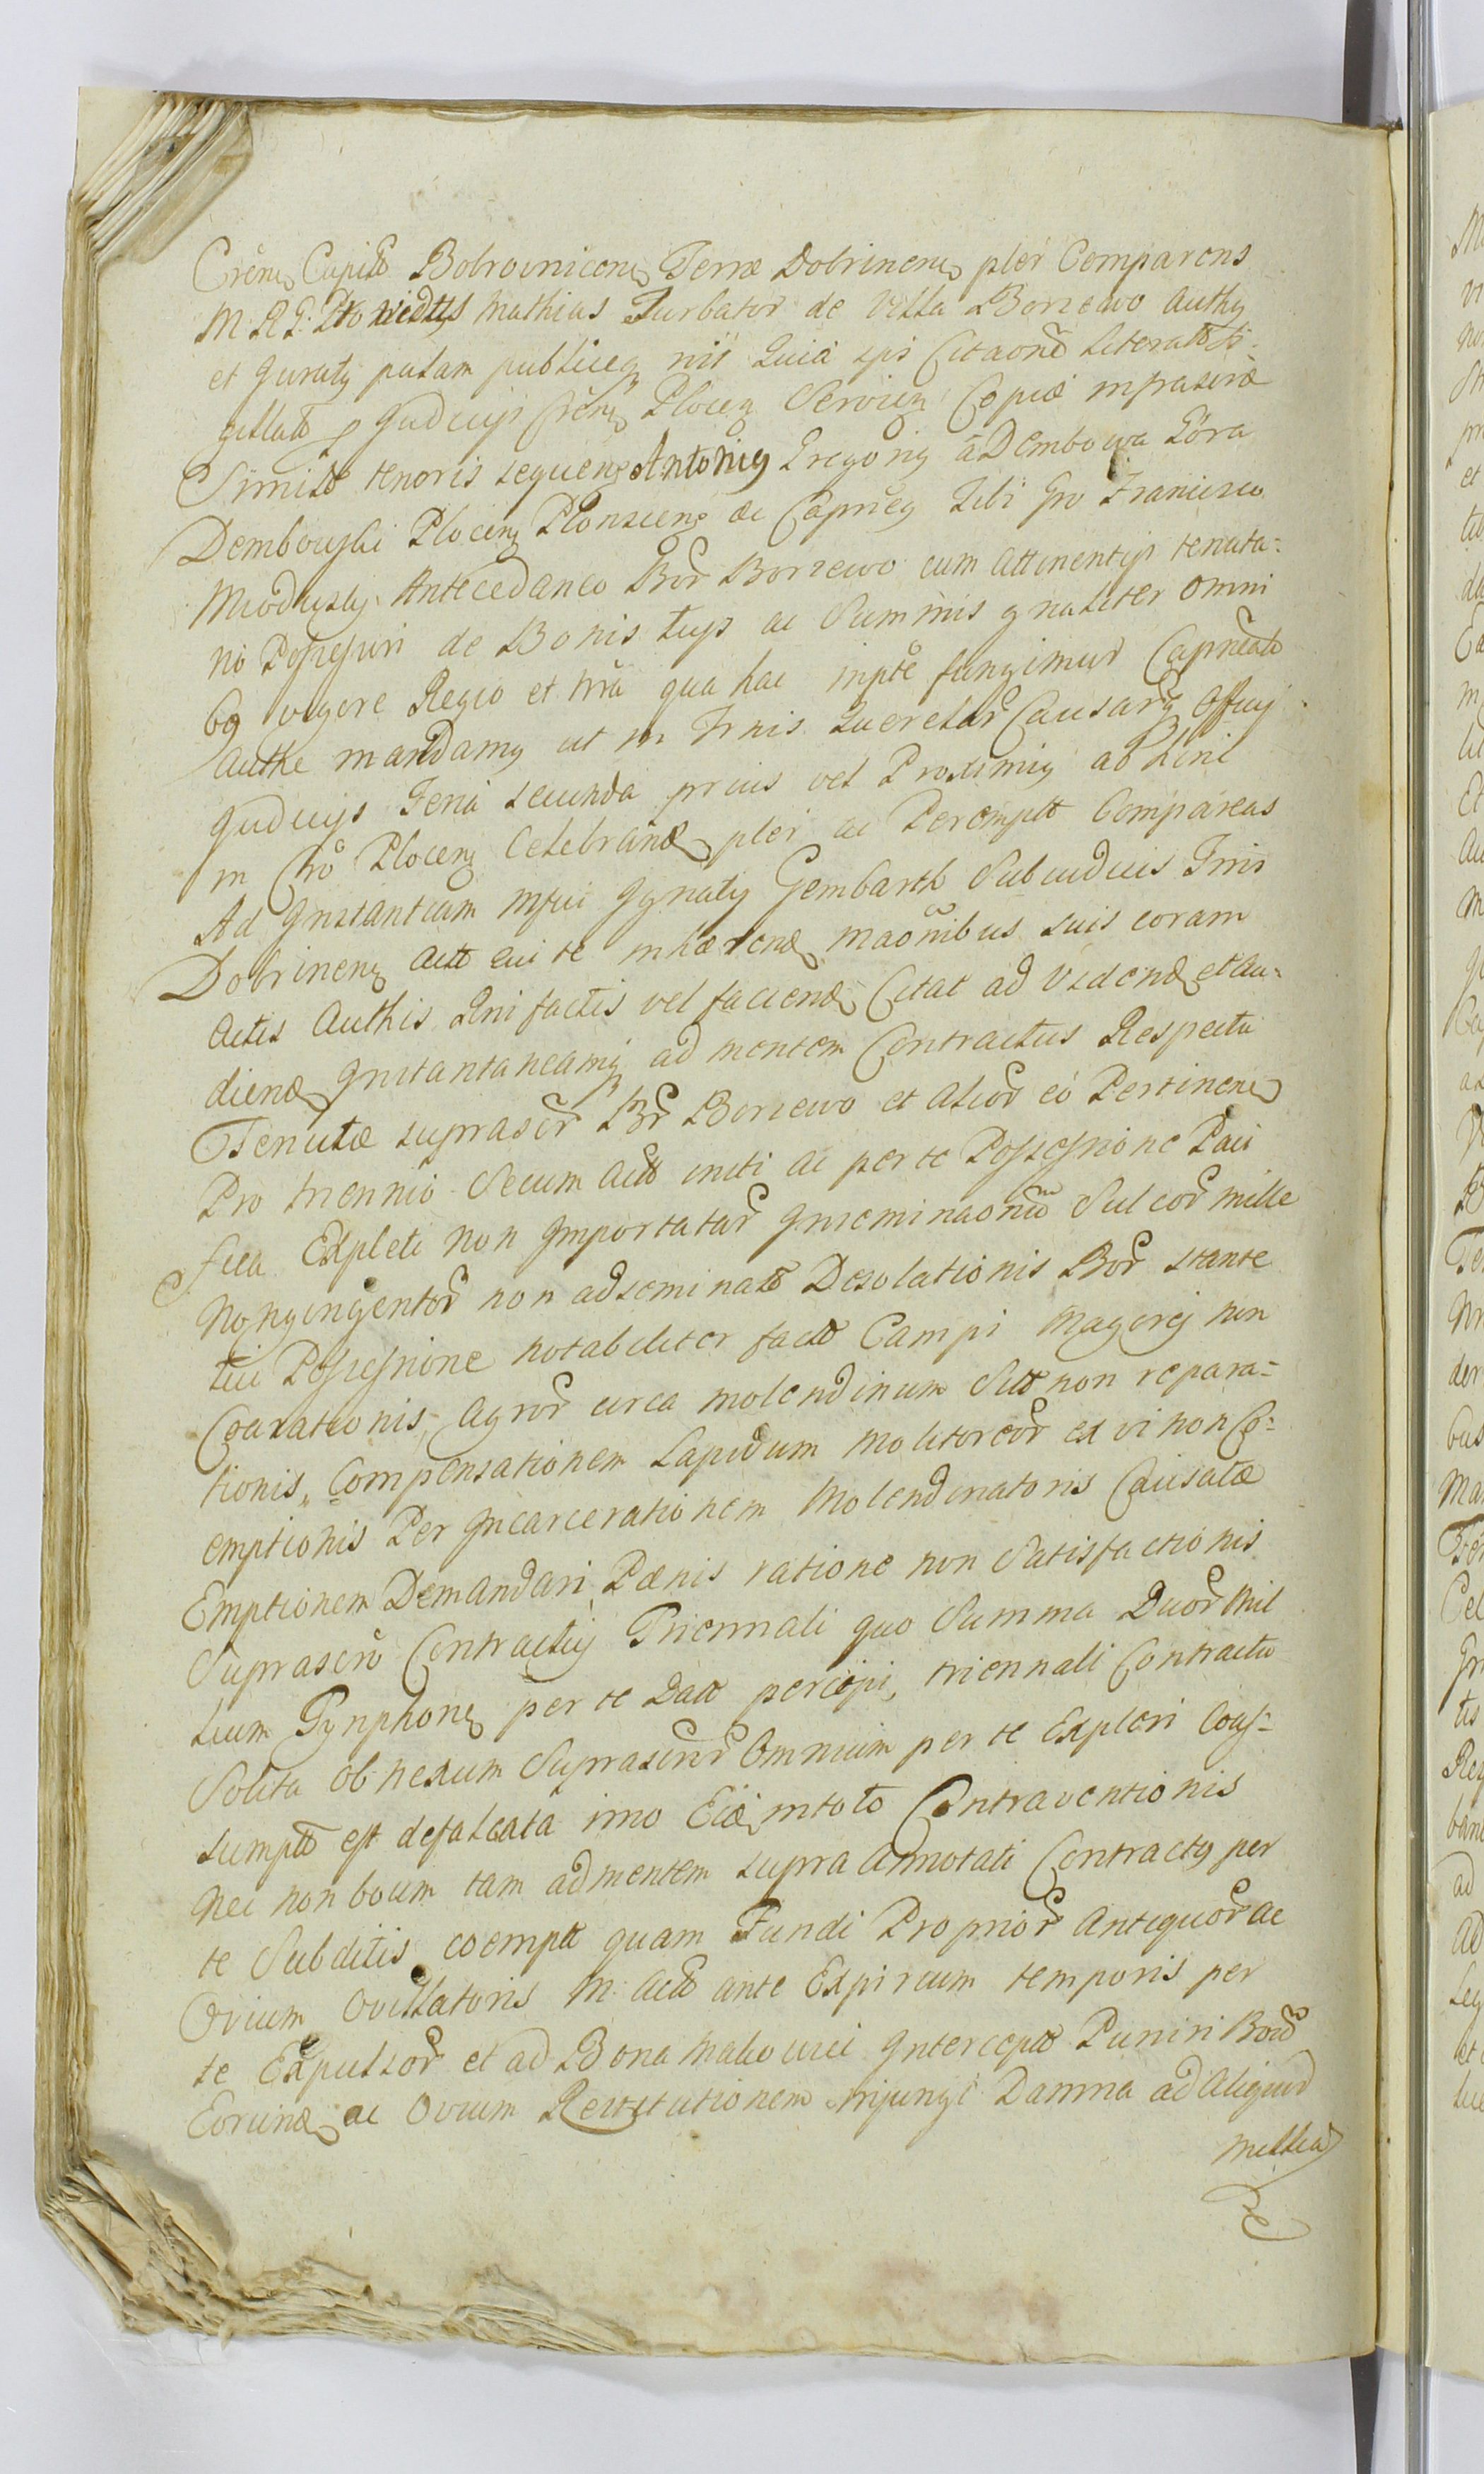 Cren Capitō Bobrovnicens Terræ Dobrinens pler Comparens
M. R. P: Providus Mathias Turbator de Villa Borzewo Auths
et Juraty palam publiceq Quia ipi Citaone Literatō Si-
gillatō Judicijs Crens Plocen Copiæ infrascræ
Similō tenoris sequens Antonius Gregorig à Dembowa Góra
Dembowski Plocen Plonscens &c Capneg Tibi Gro Francisco
Miodusky Antecedaneo Bor Borzewo cum Attinentijs tenuta-
rio Possessori de Bonis tuijs ac Summis gnaliter omni
bq vigore Regio et nrā qua hac inpte fungimur Capnealō
Authe mandamq ut in Trnis Querelar Causarq Officij
Judicijs Feria secunda prius vel Proximiq abhinc
in Cro Plocen Celebrand pler ac Peremptō Compareas
Ad Instantiam Mfici Ignatij Gembarth Subiudicis Trris
Dobrinens Actō qui te inhærend maōnibus suis coram
Actis Authis Qni factis vel faciend Citat ad Vidend et Au-
diend Instantaneamq ad mentem Contractus Respectu
Tenutæ suprascr Br Borzewo et Alior eó Pertinens
Pro triennio Secum Actō initi ac per te Possessione Paci
fica Expleti non Importatar Inseminaonū Sulcor mille
Nongingentor non adseminatō Desolationis Bor stante
tui Possessione notabiliter factō Campi Magerej non
Coaxationis, Agror circa molendinum Sitō non repara-
tionis, Compensationem Lapidum Molitoreor ex vi non Co-
emptionis Per Incarcerationem Molendinatoris Causatæ
Emptionem Demandari, Pænis ratione non Satisfactionis
Suprascrō Contractuj Triennali quo Summa Duor Mil
lium Tynphons per te Datō percipi, triennali Contractu
Solita ob nexum Suprascrir Omnium per te Expleri Cons-
sumptō est defalcata imo in totō Contraventionis
Nec non boum tam ad mentem supra Annotati Contractq per
te Subditis coemptō quam Fundi Proprior Antiquor ac
Ovium Ovillatoris M. Actō ante Expireum temporis per
te Expulsor et ad Bona Interceptō Puniri Boum
Eorund ac Ovium Restitutionem injungi Damna ad Aliquid
millia